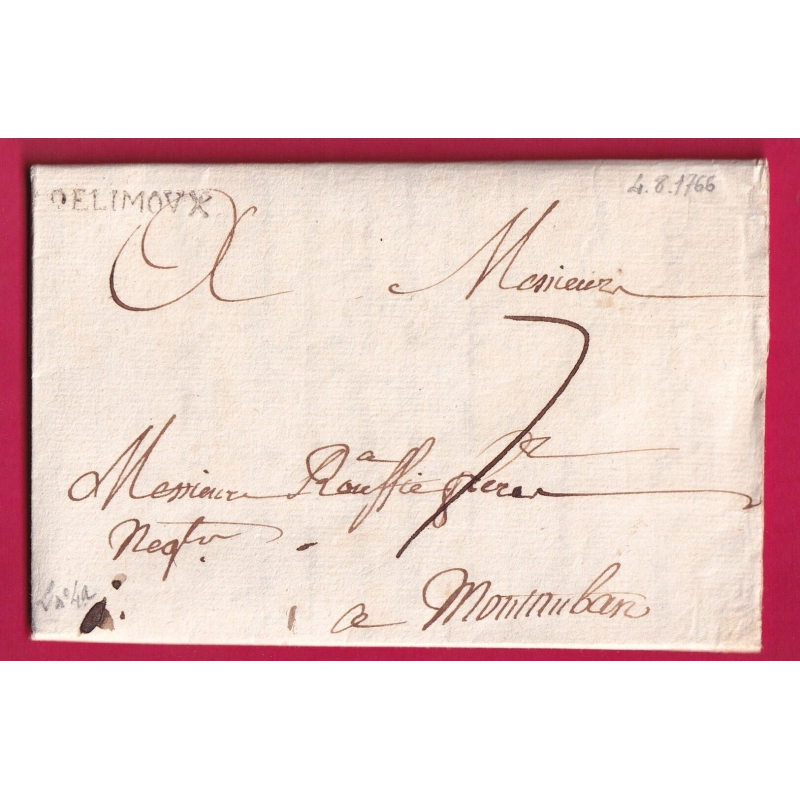 DELIMOUX
4.8.1766
A Messieurs
7
Messieurs Rouffio freres
Negts.
L n° 4a
a Montauban